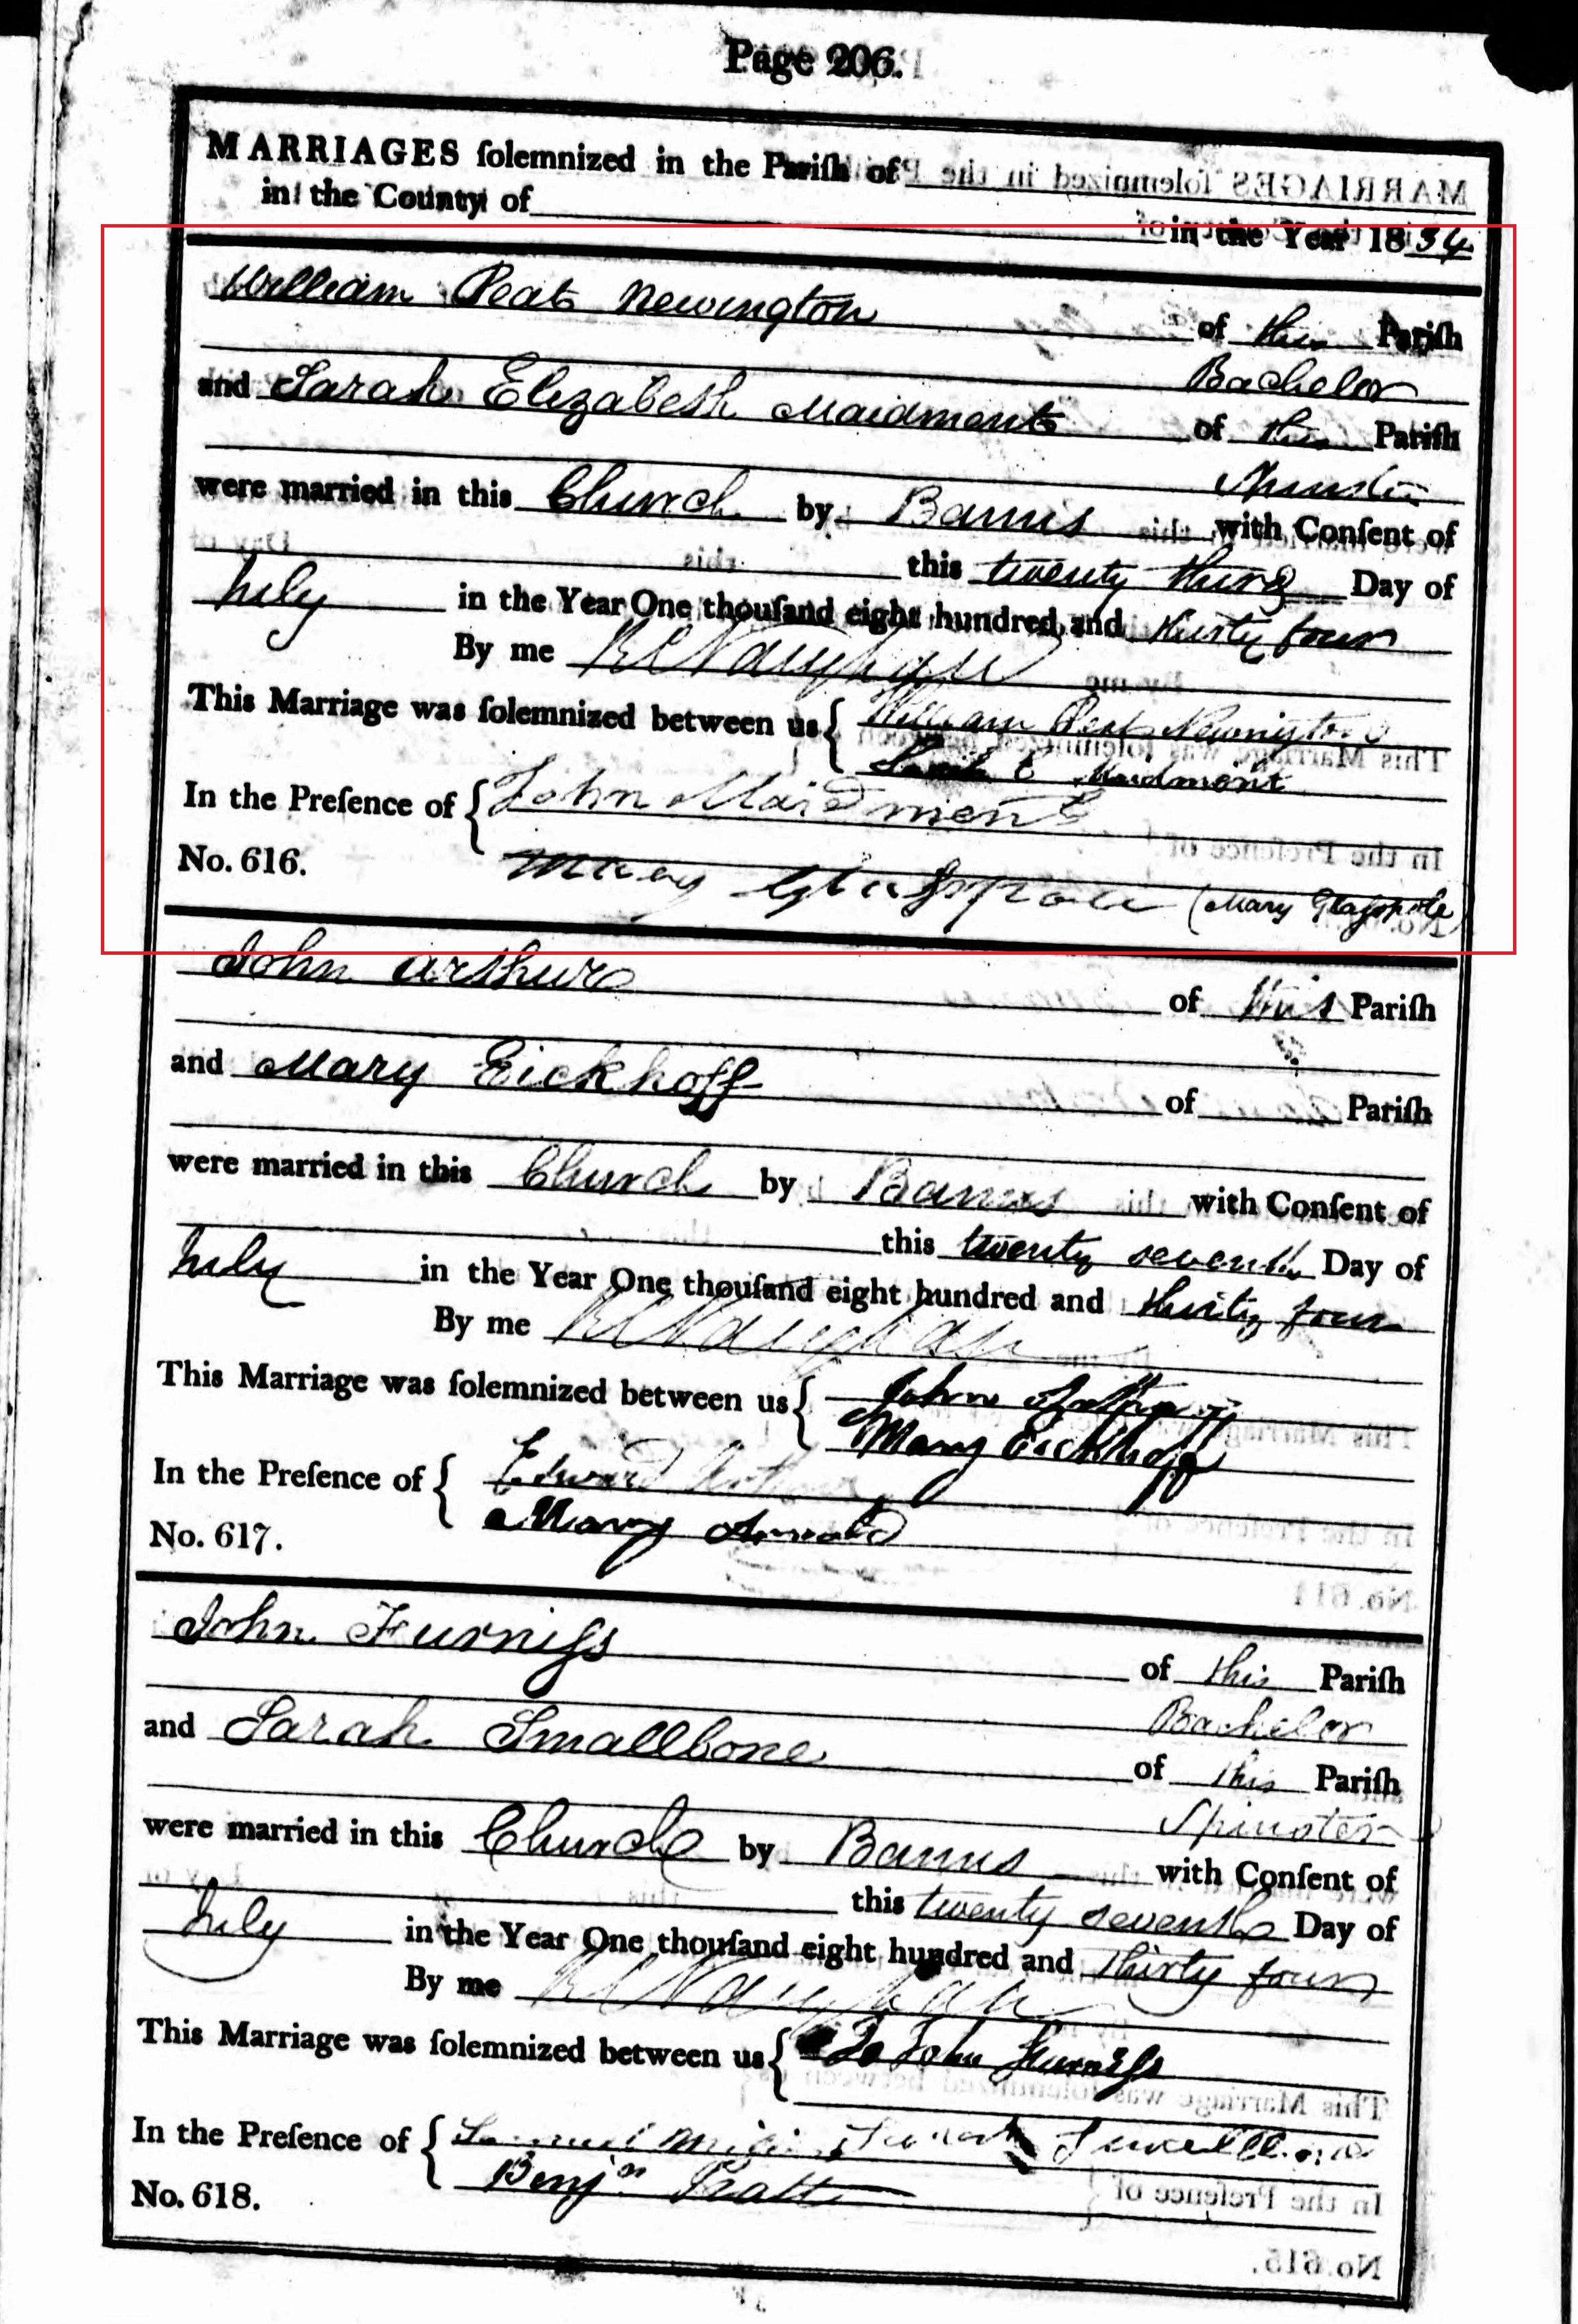 Page 206.
MARRIAGES ſolemnized in the Pariſh of
in the County of
in the Year 1834
William Peat Newington of this Pariſh
Bachelor
and Sarah Elizabeth Maidment of this Pariſh
Spinster
were married in this Church by Banns with Conſent of
this twenty third Day of
July in the Year One thouſand eight hundred and thirty four
By me
This Marriage was ſolemnized between us { William Peat Newington
Sarah E Maidment
In the Preſence of { John Maidment
Mary Glaſspole (Mary Glaſspole)
No. 616.
John Arthur of this Pariſh
and Mary Eickhoff of Pariſh
were married in this Church by Banns with Conſent of
this twenty seventh Day of
July in the Year One thouſand eight hundred and thirty four
By me
This Marriage was ſolemnized between us { John
Mary Eickhoff
In the Preſence of { Edward
Mary Arnold
No. 617.
John Furniſs of this Pariſh
Bachelor
and Sarah Smallbone of this Pariſh
Spinster
were married in this Church by Banns with Conſent of
this twenty seventh Day of
July in the Year One thouſand eight hundred and thirty four
By me
This Marriage was ſolemnized between us { John Furniſs
In the Preſence of { Samuel
Benjn Pratt
No. 618.